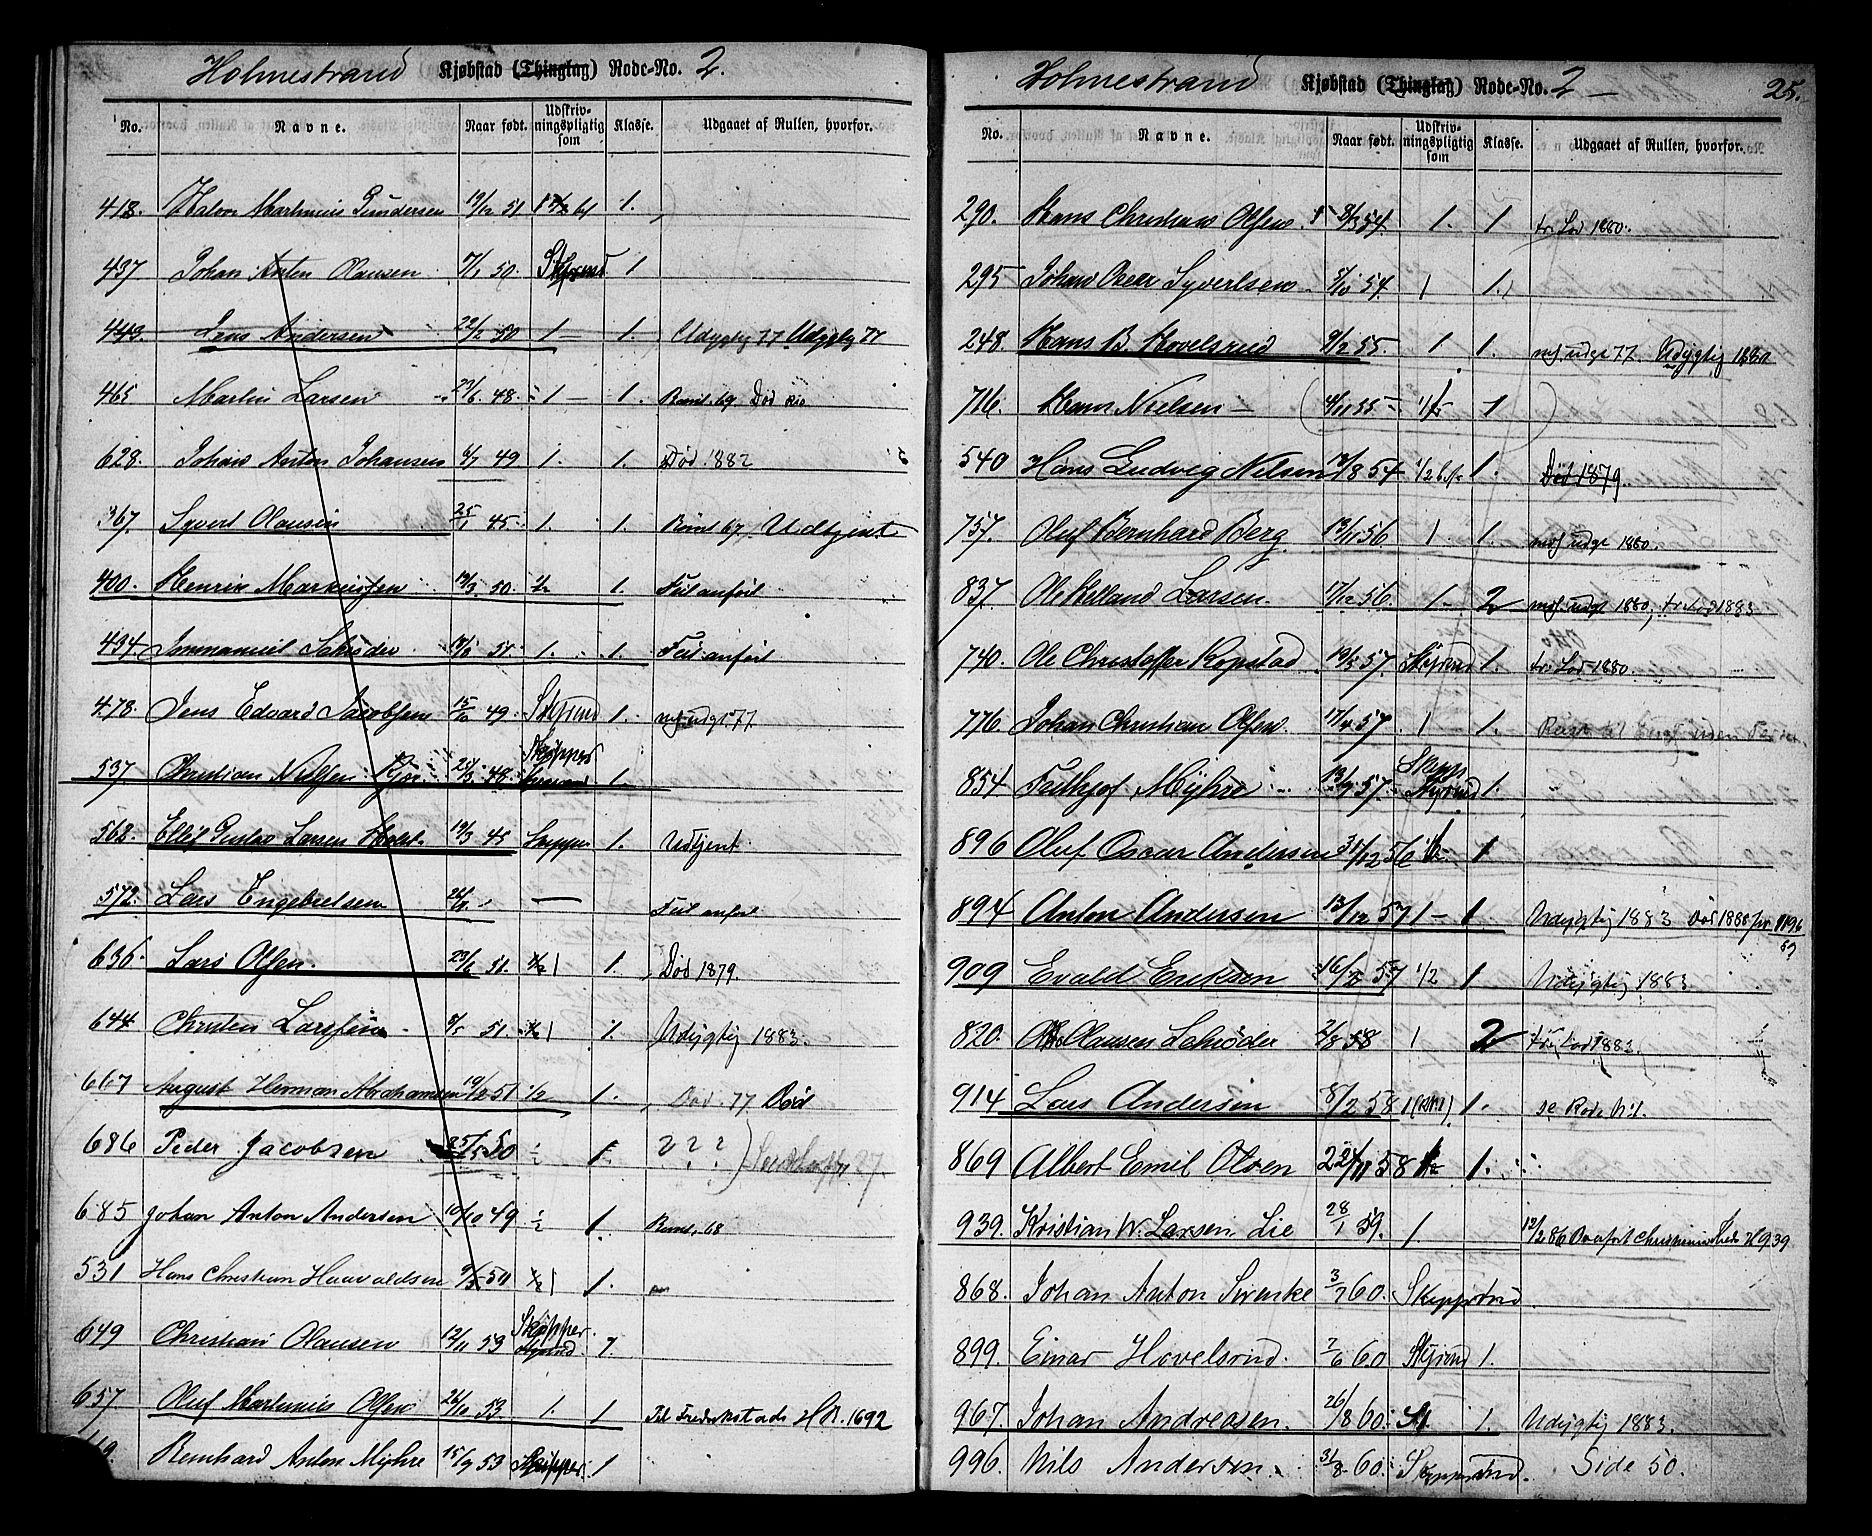 Holmestrand Kjøbstad (Thinglag) Rode-No. 2.
No. Navne. Naar født. Udskriv-ningspligtig som Klasse. Udgaaet af Rullen, hvorfor.
418. Halvor Martinius Gundersen 19/12 51 1.
437 Johan Anton Olausen 50. Skpmd 1
443. Jens Andersen 22/2 50 1 — 1. Udygtig 77 Udygtig 77
465 Martin Larsen 23/6 48 1 — 1. Død
628. Johan Anton Johansen 49 1. 1. Død 1882
367. Syvert Olausen 25/1 45 1. 1. Udtjent
400. Henrik Markussen 50. 1/2 1. Feil anført
434. Immanuel Schrøder 51. 1. 1. Feil anført
478. Jens Edvard Jacobsen 15/10 49. 1. midl. udgt 77
537 Christian Nilsen 48 Skipper 1.
563. Ellef Gustav Larsen Holst 19/3 45 1. Udtjent
572. Lars Engebretsen — Feil anført
636. Lars Olsen. 23/6 51. 1 1. Død 1879
644 Christen Larssen 51. 1 1. Udygtig 1883.
667 August Herman Abrahamsen 19/2 51 1/2 1. Død 77 Død
686 Peder Jacobsen 25/5 50 1. ? ? ?
685 Johan Anton Andersen 10/10 49 1. 68
531 Hans Christian Haavaldsen 50 1 1.
649 Christian Olausen 12/11 53 Skipper.
657 Oluf Martinius Olsen 26/10 53 1. 1 Til Fredrikstads HR. 1692
Bernhard Anton Myhre 15/9 53 Skipper 1
Holmestrand Kjøbstad (Thinglag) Rode-No. 2 — 25.
No. Navne. Naar født. Udskriv-ningspligtig som Klasse. Udgaaet af Rullen, hvorfor.
290. Hans Christian Olsen 54. 1. 1 fr. Lod 1880.
295 Johan Oscar Syvertsen 5/10 54. 1 1.
248. Hans B. Hovelsrud 9/2 55. 1 1. midl. udgt 77. Udygtig 1880
716. Hans Nielsen — 4/11 55 1
540 Hans Ludvig Nilsen /8 54 1/2 1. Død 1879
757. Oluf Bernhard Berg 13/11 56 1 1. midl. udgt 1880.
837 Ole Helland Larsen. 17/12 56. 1 2 midl. udgt 1880, fr. Lod 1883
740. Ole Christoffer Kopstad 19/5 57. 1. fr. Lod 1880.
776. Johan Christian Olsen 17/4 57 1 1.
854 Fridthjof Myhre 13/9 57. 1.
896 Oluf Oscar Andersen 31/12 56 1
894 Anton Andersen 13/12 57 1 — 1 Udygtig 1883 Død 1888
909 Evald Eriksen 16/2 57 1/2 1 Udygtig 1883
820. Ole Olausen Schrøder 2/8 58 1 2 fr. Lod 1883.
914 Lars Andersen 8/2 58 1 1. se Rode No 1.
869 Albert Emil Olsen 22/11 58 1.
939. Kristian W. Larsen Lie 28/1 59. 1. 12/2 86 939
868. Johan Anton Svenske 3/7 60. Skippstmd
899. Einar Hovelsrud. 7/6 60 1.
967. Johan Andreasen. 26/8 60. 1. Udygtig 1883.
996. Nils Andersen. 31/8 60. Side 50.